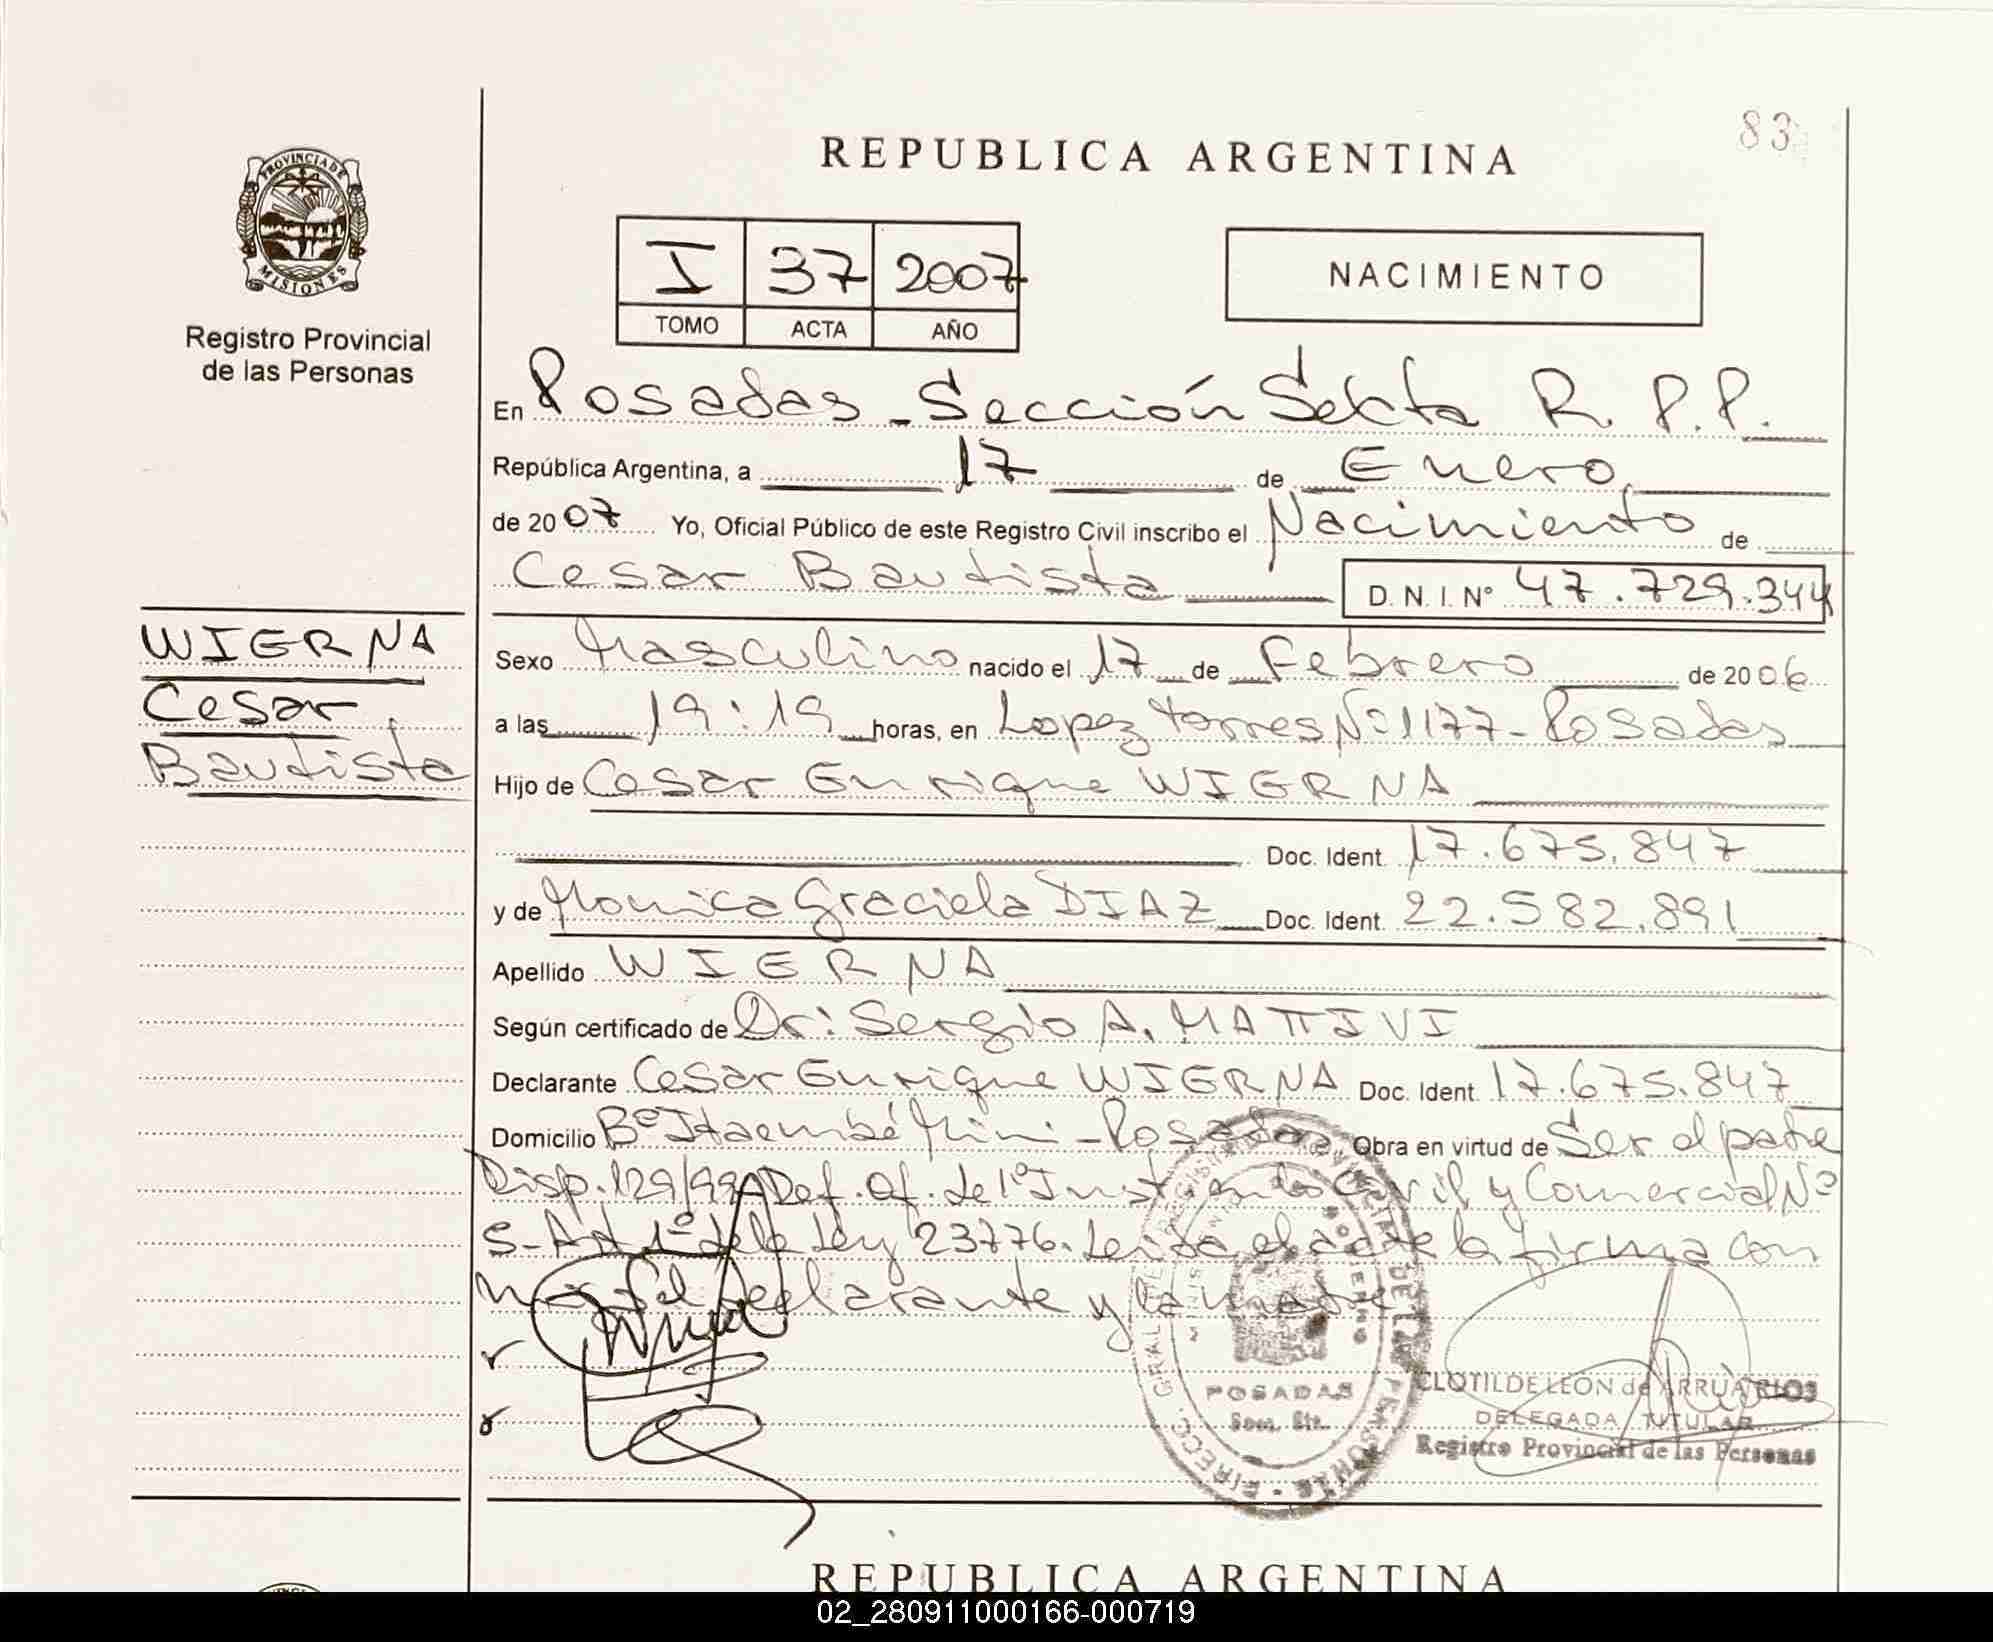 83
REPUBLICA ARGENTINA
PROVINCIA DE
MISIONES
Registro Provincial
de las Personas
I 37 2007
TOMO ACTA AÑO
NACIMIENTO
En Posadas - Sección Sexta R. P. P.
República Argentina, a 17 de Enero
de 2007 Yo, Oficial Público de este Registro Civil inscribo el Nacimiento de
Cesar Bautista D. N. I. Nº 47.729.344
WIERNA
Cesar
Bautista
Sexo Masculino nacido el 17 de Febrero de 2006
a las 19:19 horas, en Lopez Torres Nº 1177 - Posadas
Hijo de Cesar Enrique WIERNA
Doc. Ident. 17.675.847
y de Monica Graciela DIAZ Doc. Ident. 22.582.891
Apellido WIERNA
Según certificado de Dr: Sergio A. MATTIVI
Declarante Cesar Enrique WIERNA Doc. Ident. 17.675.847
Domicilio Bº Itaembé Mini - Posadas Obra en virtud de Ser el padre
Disp. 129/99 Def. Of. de 1º Inst. en lo Civil y Comercial Nº
5 - Art 1º de la Ley 23776. Leida el acta la firma con
migo el declarante y la madre
POSADAS
Secc. 6ta.
CLOTILDE LEON de ARRUA RIOS
DELEGADA TITULAR
Registro Provincial de las Personas
REPUBLICA ARGENTINA
02_280911000166-000719